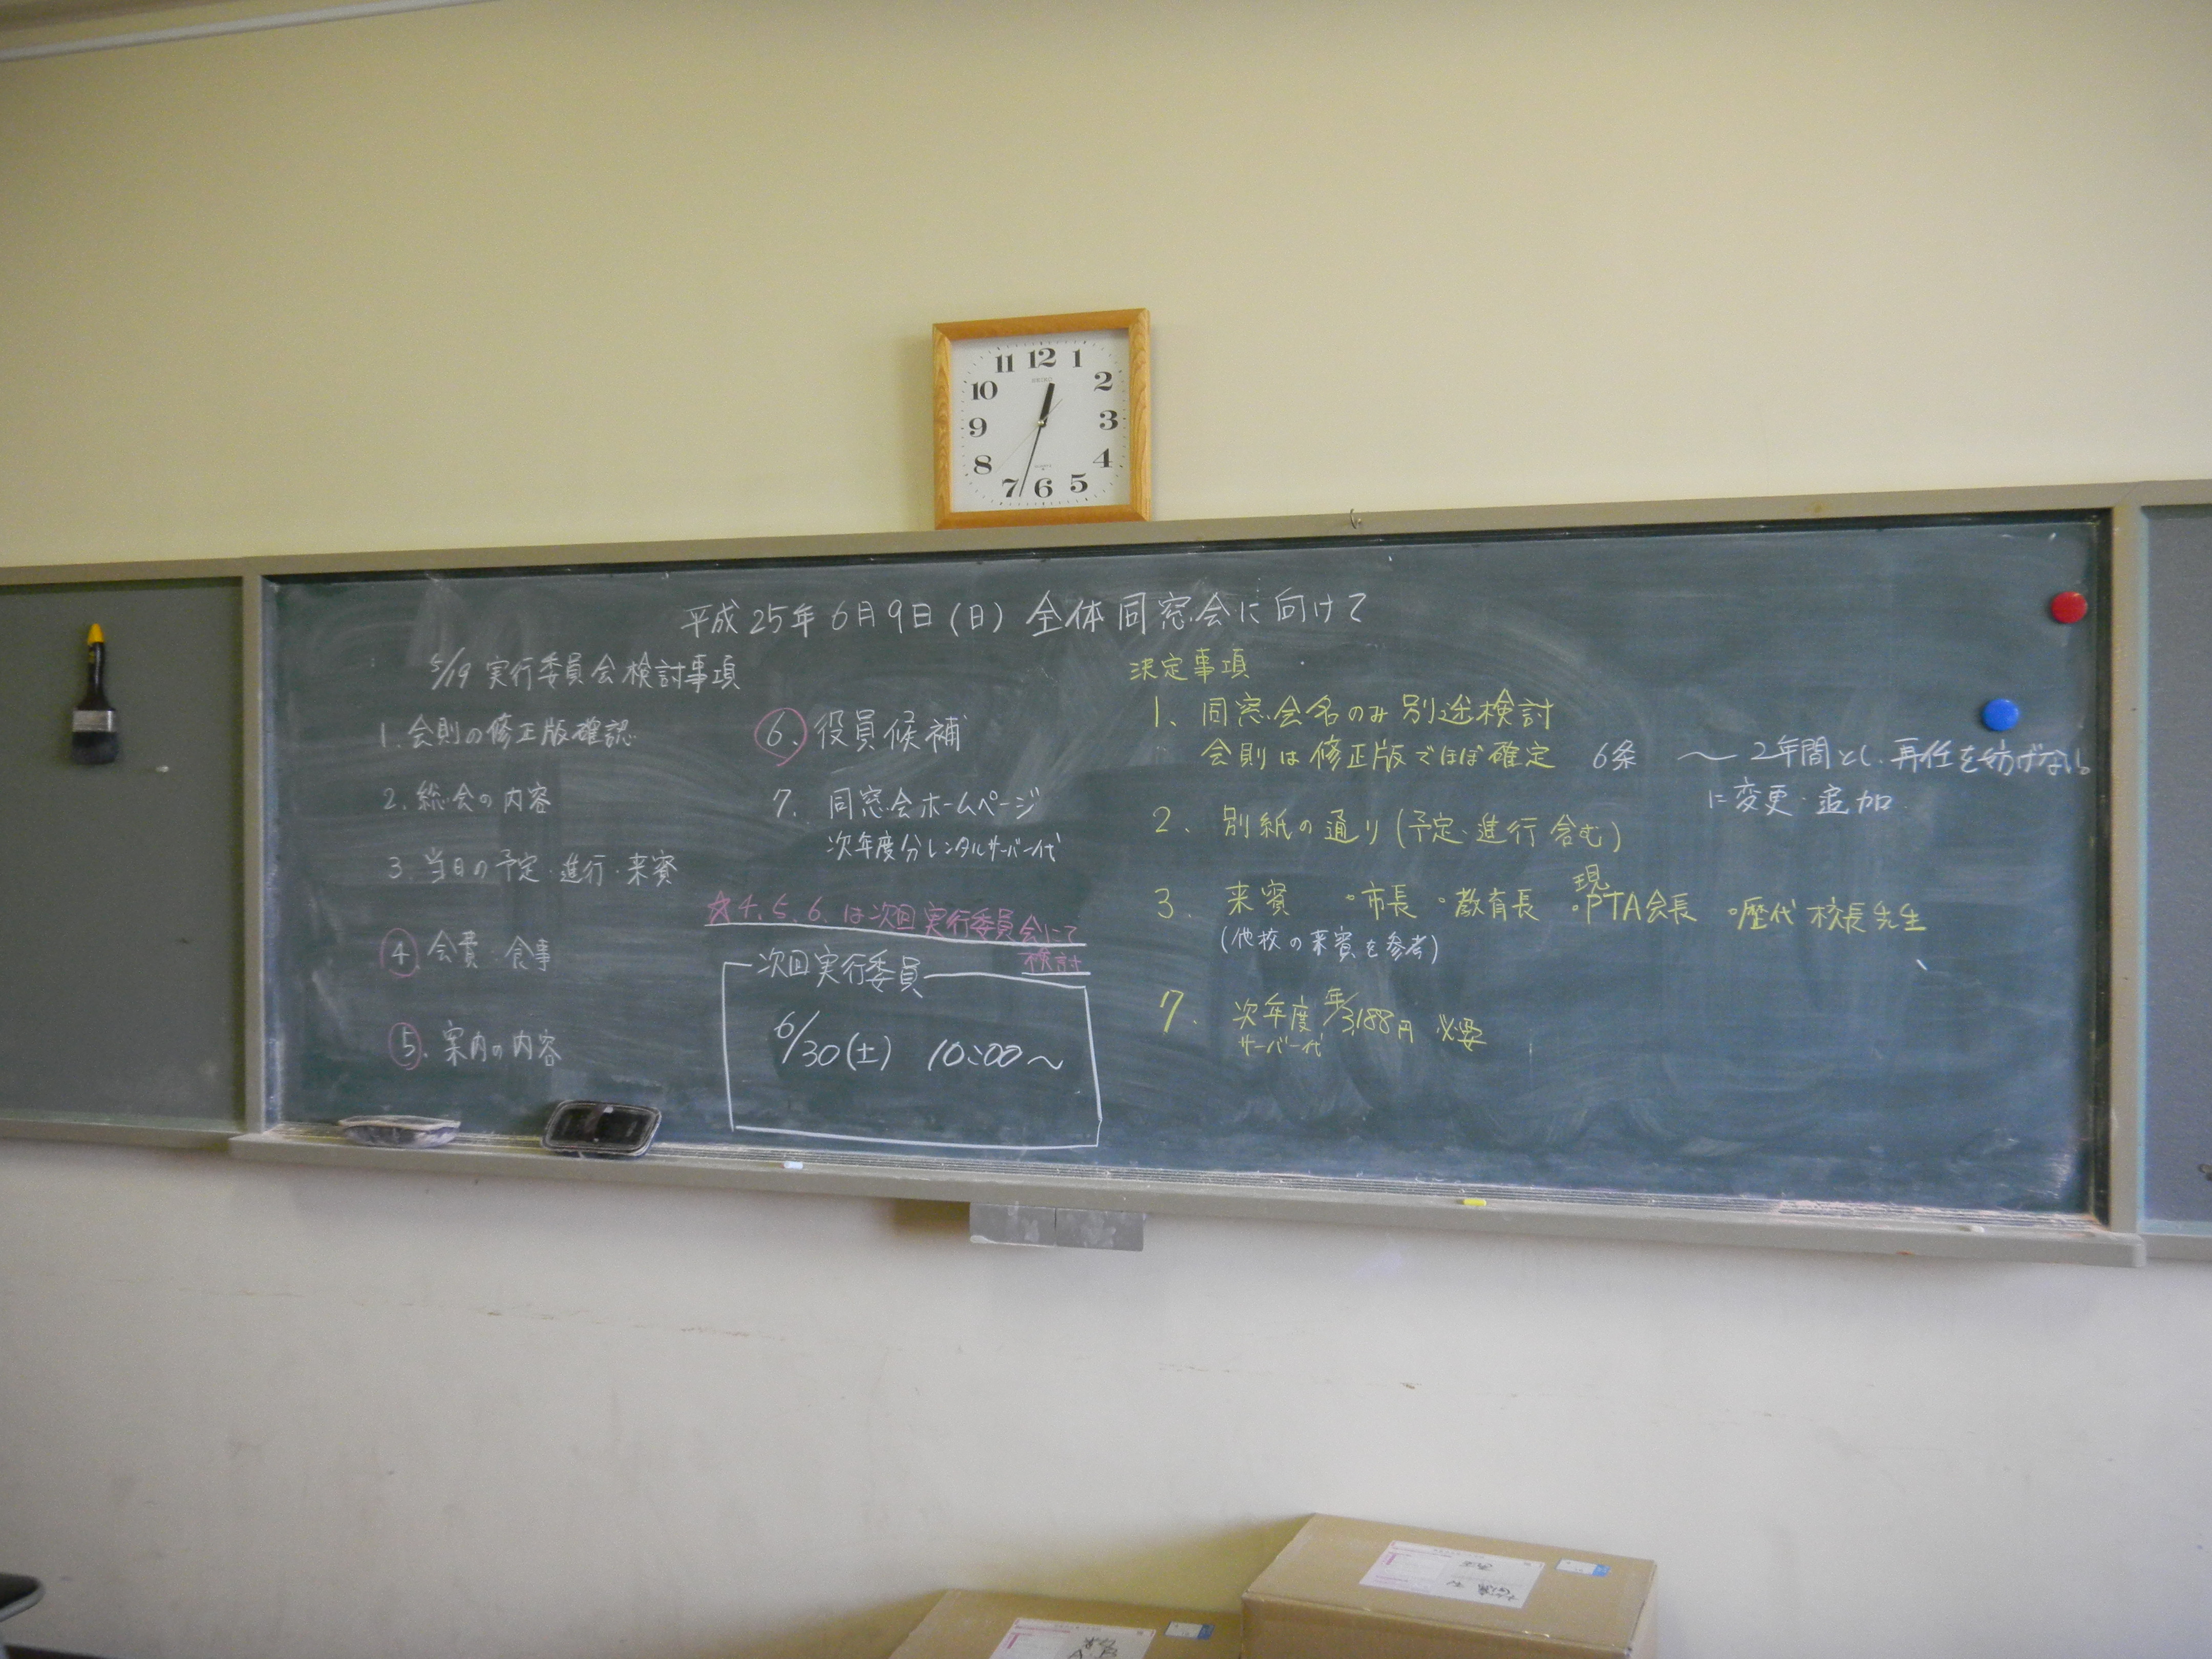 11 12 1
10 2
9 3
8 4
7 6 5
平成25年6月9日(日) 全体同窓会に向けて
5/19 実行委員会検討事項
1. 会則の修正版確認
2. 総会の内容
3. 当日の予定・進行・来賓
④. 会費・食事
⑤. 案内の内容
⑥. 役員候補
7. 同窓会ホームページ
次年度分レンタルサーバー代
☆4.5.6.は次回実行委員会にて
検討
次回実行委員
6/30(土) 10:00~
決定事項
1、同窓会名のみ別途検討
会則は修正版でほぼ確定 6条 ~2年間とし、再任を妨げない。
に変更・追加
2. 別紙の通り(予定・進行含む)
3. 来賓 ・市長 ・教育長 ・現PTA会長 ・歴代校長先生
(他校の来賓を参考)
7. 次年度 年/3,188円 必要
サーバー代